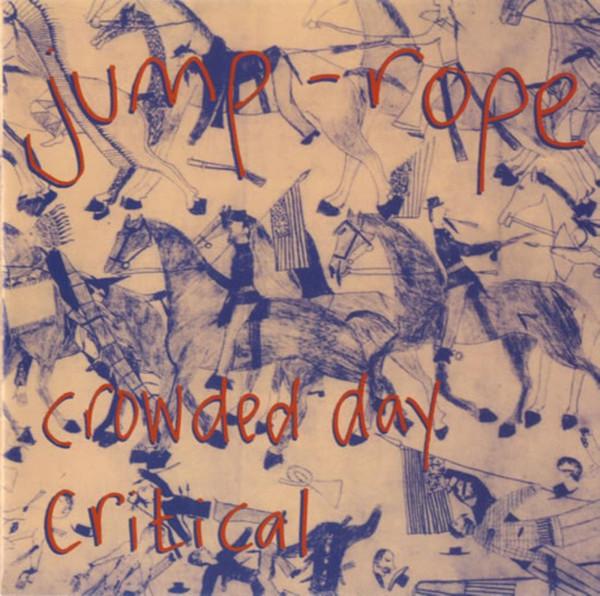 jump-rope
crowded day
Critical